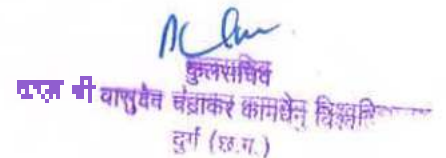 कुलसचिव
श्री वासुदेव चंद्राकर कामधेनु
दुर्ग (छ.ग.)